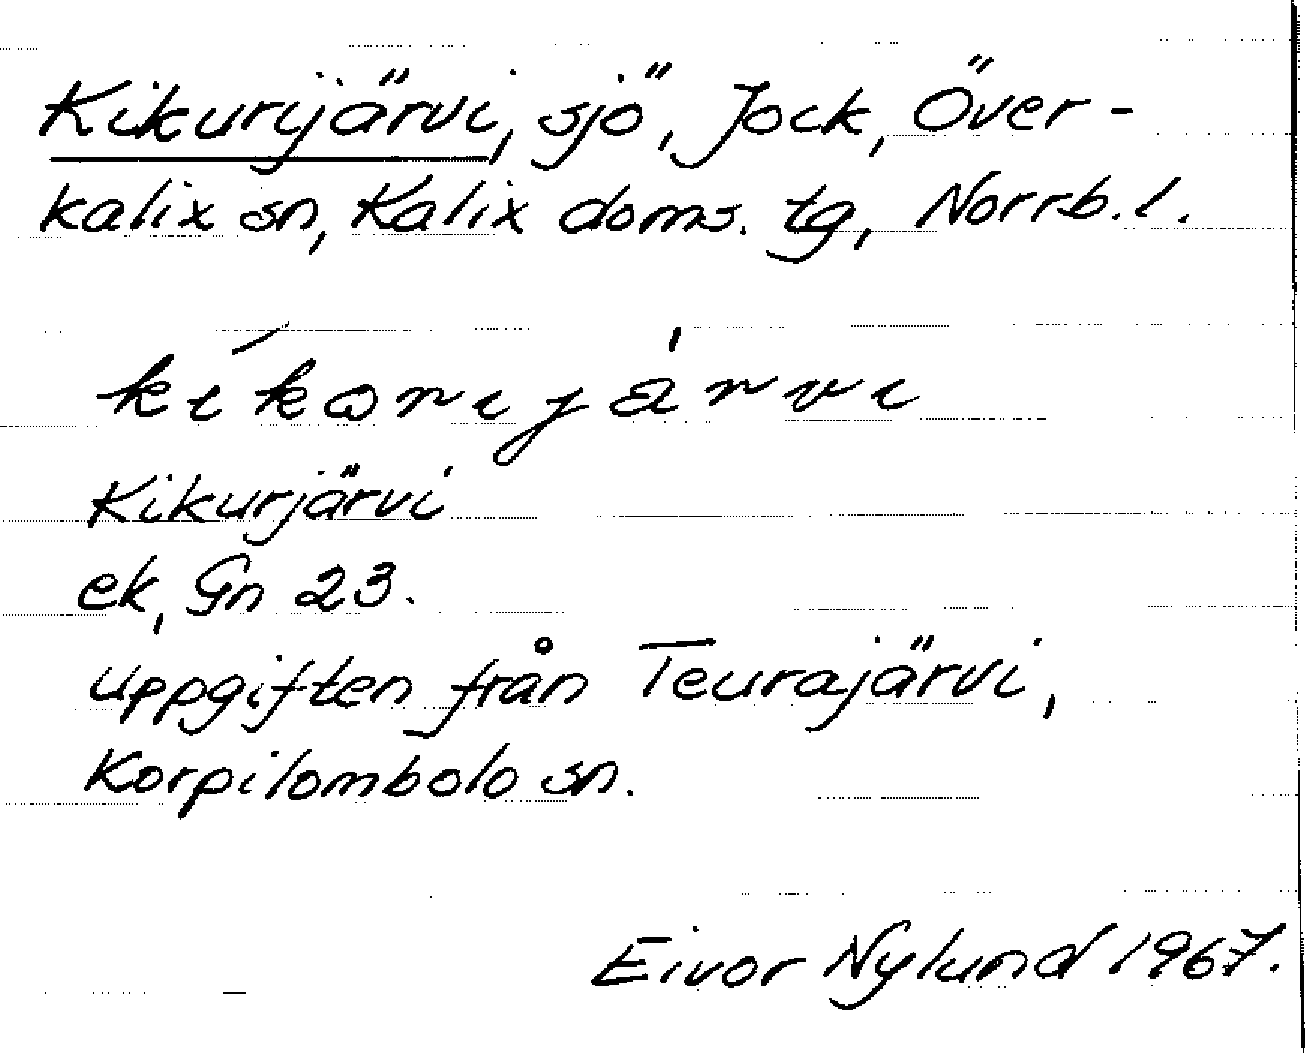 Kikurijärvi, sjö, Jock, Över-
kalix sn, Kalix doms. tg, Norrb.l.
kikorijärvi
Kikurjärvi
ek, Gn 23.
uppgiften från Teurajärvi,
Korpilombolo sn.
Eivor Nylund 1967.